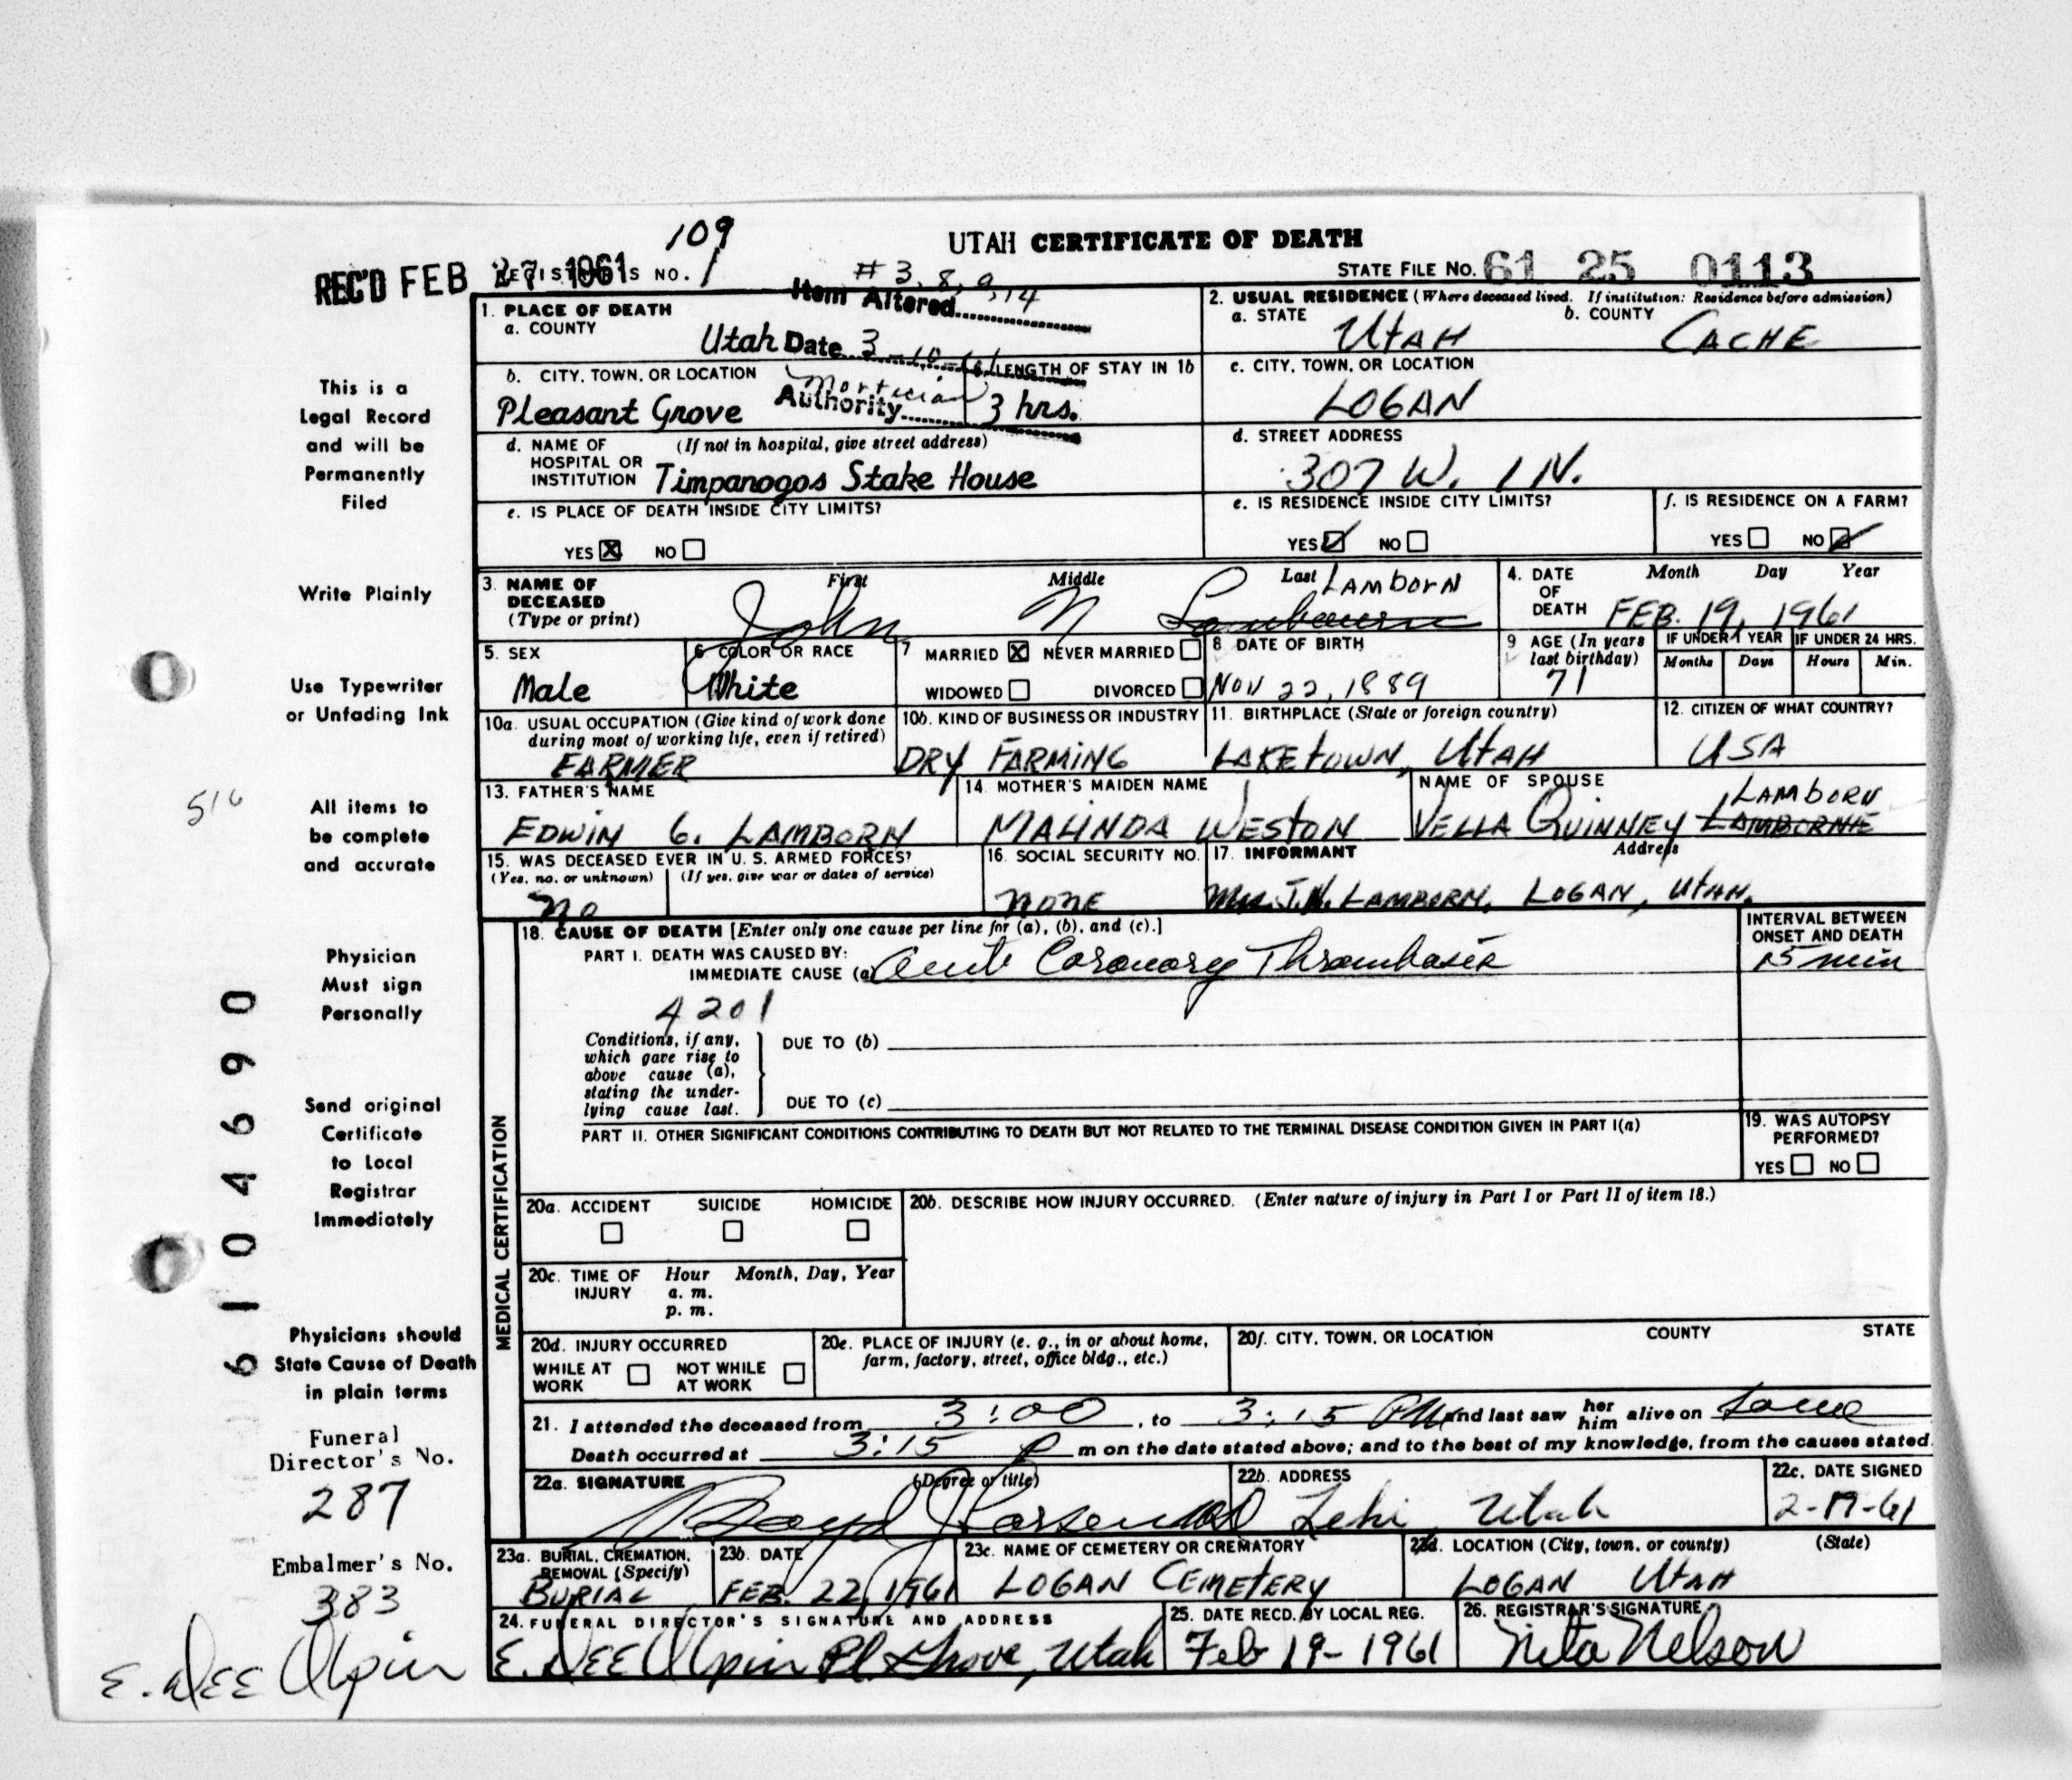 109
UTAH CERTIFICATE OF DEATH
REC'D FEB 27 1961
REGISTRAR'S NO.
STATE FILE NO. 61 25 0113
Item Altered # 3, 8, 9, 14
Date 3-10-61
Authority Mortician
1. PLACE OF DEATH
a. COUNTY
Utah
2. USUAL RESIDENCE (Where deceased lived. If institution: Residence before admission)
a. STATE UTAH b. COUNTY CACHE
b. CITY, TOWN, OR LOCATION
Pleasant Grove
c. LENGTH OF STAY IN 1b
3 hrs.
c. CITY, TOWN, OR LOCATION
LOGAN
d. NAME OF HOSPITAL OR INSTITUTION (If not in hospital, give street address)
Timpanogos Stake House
d. STREET ADDRESS
307 W. 1 N.
e. IS PLACE OF DEATH INSIDE CITY LIMITS?
YES X NO
e. IS RESIDENCE INSIDE CITY LIMITS?
YES ✓ NO
f. IS RESIDENCE ON A FARM?
YES NO ✓
3. NAME OF DECEASED (Type or print)
First Middle Last
John N Lambourn LAMBORN
4. DATE OF DEATH Month Day Year
FEB. 19, 1961
5. SEX
Male
6 COLOR OR RACE
White
7 MARRIED X NEVER MARRIED
WIDOWED DIVORCED
8 DATE OF BIRTH
NOV 22, 1889
9 AGE (In years last birthday)
71
IF UNDER 1 YEAR IF UNDER 24 HRS.
Months Days Hours Min.
10a. USUAL OCCUPATION (Give kind of work done during most of working life, even if retired)
FARMER
10b. KIND OF BUSINESS OR INDUSTRY
DRY FARMING
11. BIRTHPLACE (State or foreign country)
LAKETOWN, UTAH
12. CITIZEN OF WHAT COUNTRY?
USA
13. FATHER'S NAME
EDWIN G. LAMBORN
14. MOTHER'S MAIDEN NAME
MALINDA WESTON
NAME OF SPOUSE
VELLA QUINNEY LAMBORNE LAMBORN
15. WAS DECEASED EVER IN U. S. ARMED FORCES?
(Yes, no, or unknown) (If yes, give war or dates of service)
no
16. SOCIAL SECURITY NO.
none
17. INFORMANT Address
Mrs. J.N. LAMBORN, LOGAN, UTAH.
MEDICAL CERTIFICATION
18. CAUSE OF DEATH [Enter only one cause per line for (a), (b), and (c).]
PART I. DEATH WAS CAUSED BY:
IMMEDIATE CAUSE (a) Acute Coronary Thrombosis
INTERVAL BETWEEN ONSET AND DEATH
15 min
4201
Conditions, if any, which gave rise to above cause (a), stating the underlying cause last.
DUE TO (b)
DUE TO (c)
PART II. OTHER SIGNIFICANT CONDITIONS CONTRIBUTING TO DEATH BUT NOT RELATED TO THE TERMINAL DISEASE CONDITION GIVEN IN PART I(a)
19. WAS AUTOPSY PERFORMED?
YES NO
20a. ACCIDENT SUICIDE HOMICIDE
20b. DESCRIBE HOW INJURY OCCURRED. (Enter nature of injury in Part I or Part II of item 18.)
20c. TIME OF INJURY Hour Month, Day, Year
a. m.
p. m.
20d. INJURY OCCURRED
WHILE AT WORK NOT WHILE AT WORK
20e. PLACE OF INJURY (e. g., in or about home, farm, factory, street, office bldg., etc.)
20f. CITY, TOWN, OR LOCATION COUNTY STATE
21. I attended the deceased from 3:00, to 3:15 PM and last saw her him alive on same
Death occurred at 3:15 P m on the date stated above; and to the best of my knowledge, from the causes stated.
22a. SIGNATURE (Degree or title)
Boyd Larsen MD
22b. ADDRESS
Lehi, Utah
22c. DATE SIGNED
2-19-61
23a. BURIAL, CREMATION, REMOVAL (Specify)
BURIAL
23b. DATE
FEB. 22, 1961
23c. NAME OF CEMETERY OR CREMATORY
LOGAN CEMETERY
23d. LOCATION (City, town, or county) (State)
LOGAN UTAH
24. FUNERAL DIRECTOR'S SIGNATURE AND ADDRESS
E. DEE Olpin Pl. Grove, Utah
25. DATE RECD. BY LOCAL REG.
Feb 19 - 1961
26. REGISTRAR'S SIGNATURE
Nita Nelson
This is a
Legal Record
and will be
Permanently
Filed
Write Plainly
Use Typewriter
or Unfading Ink
516
All items to
be complete
and accurate
Physician
Must sign
Personally
Send original
Certificate
to Local
Registrar
Immediately
Physicians should
State Cause of Death
in plain terms
Funeral
Director's No.
287
Embalmer's No.
383
E. DEE Olpin
6104690